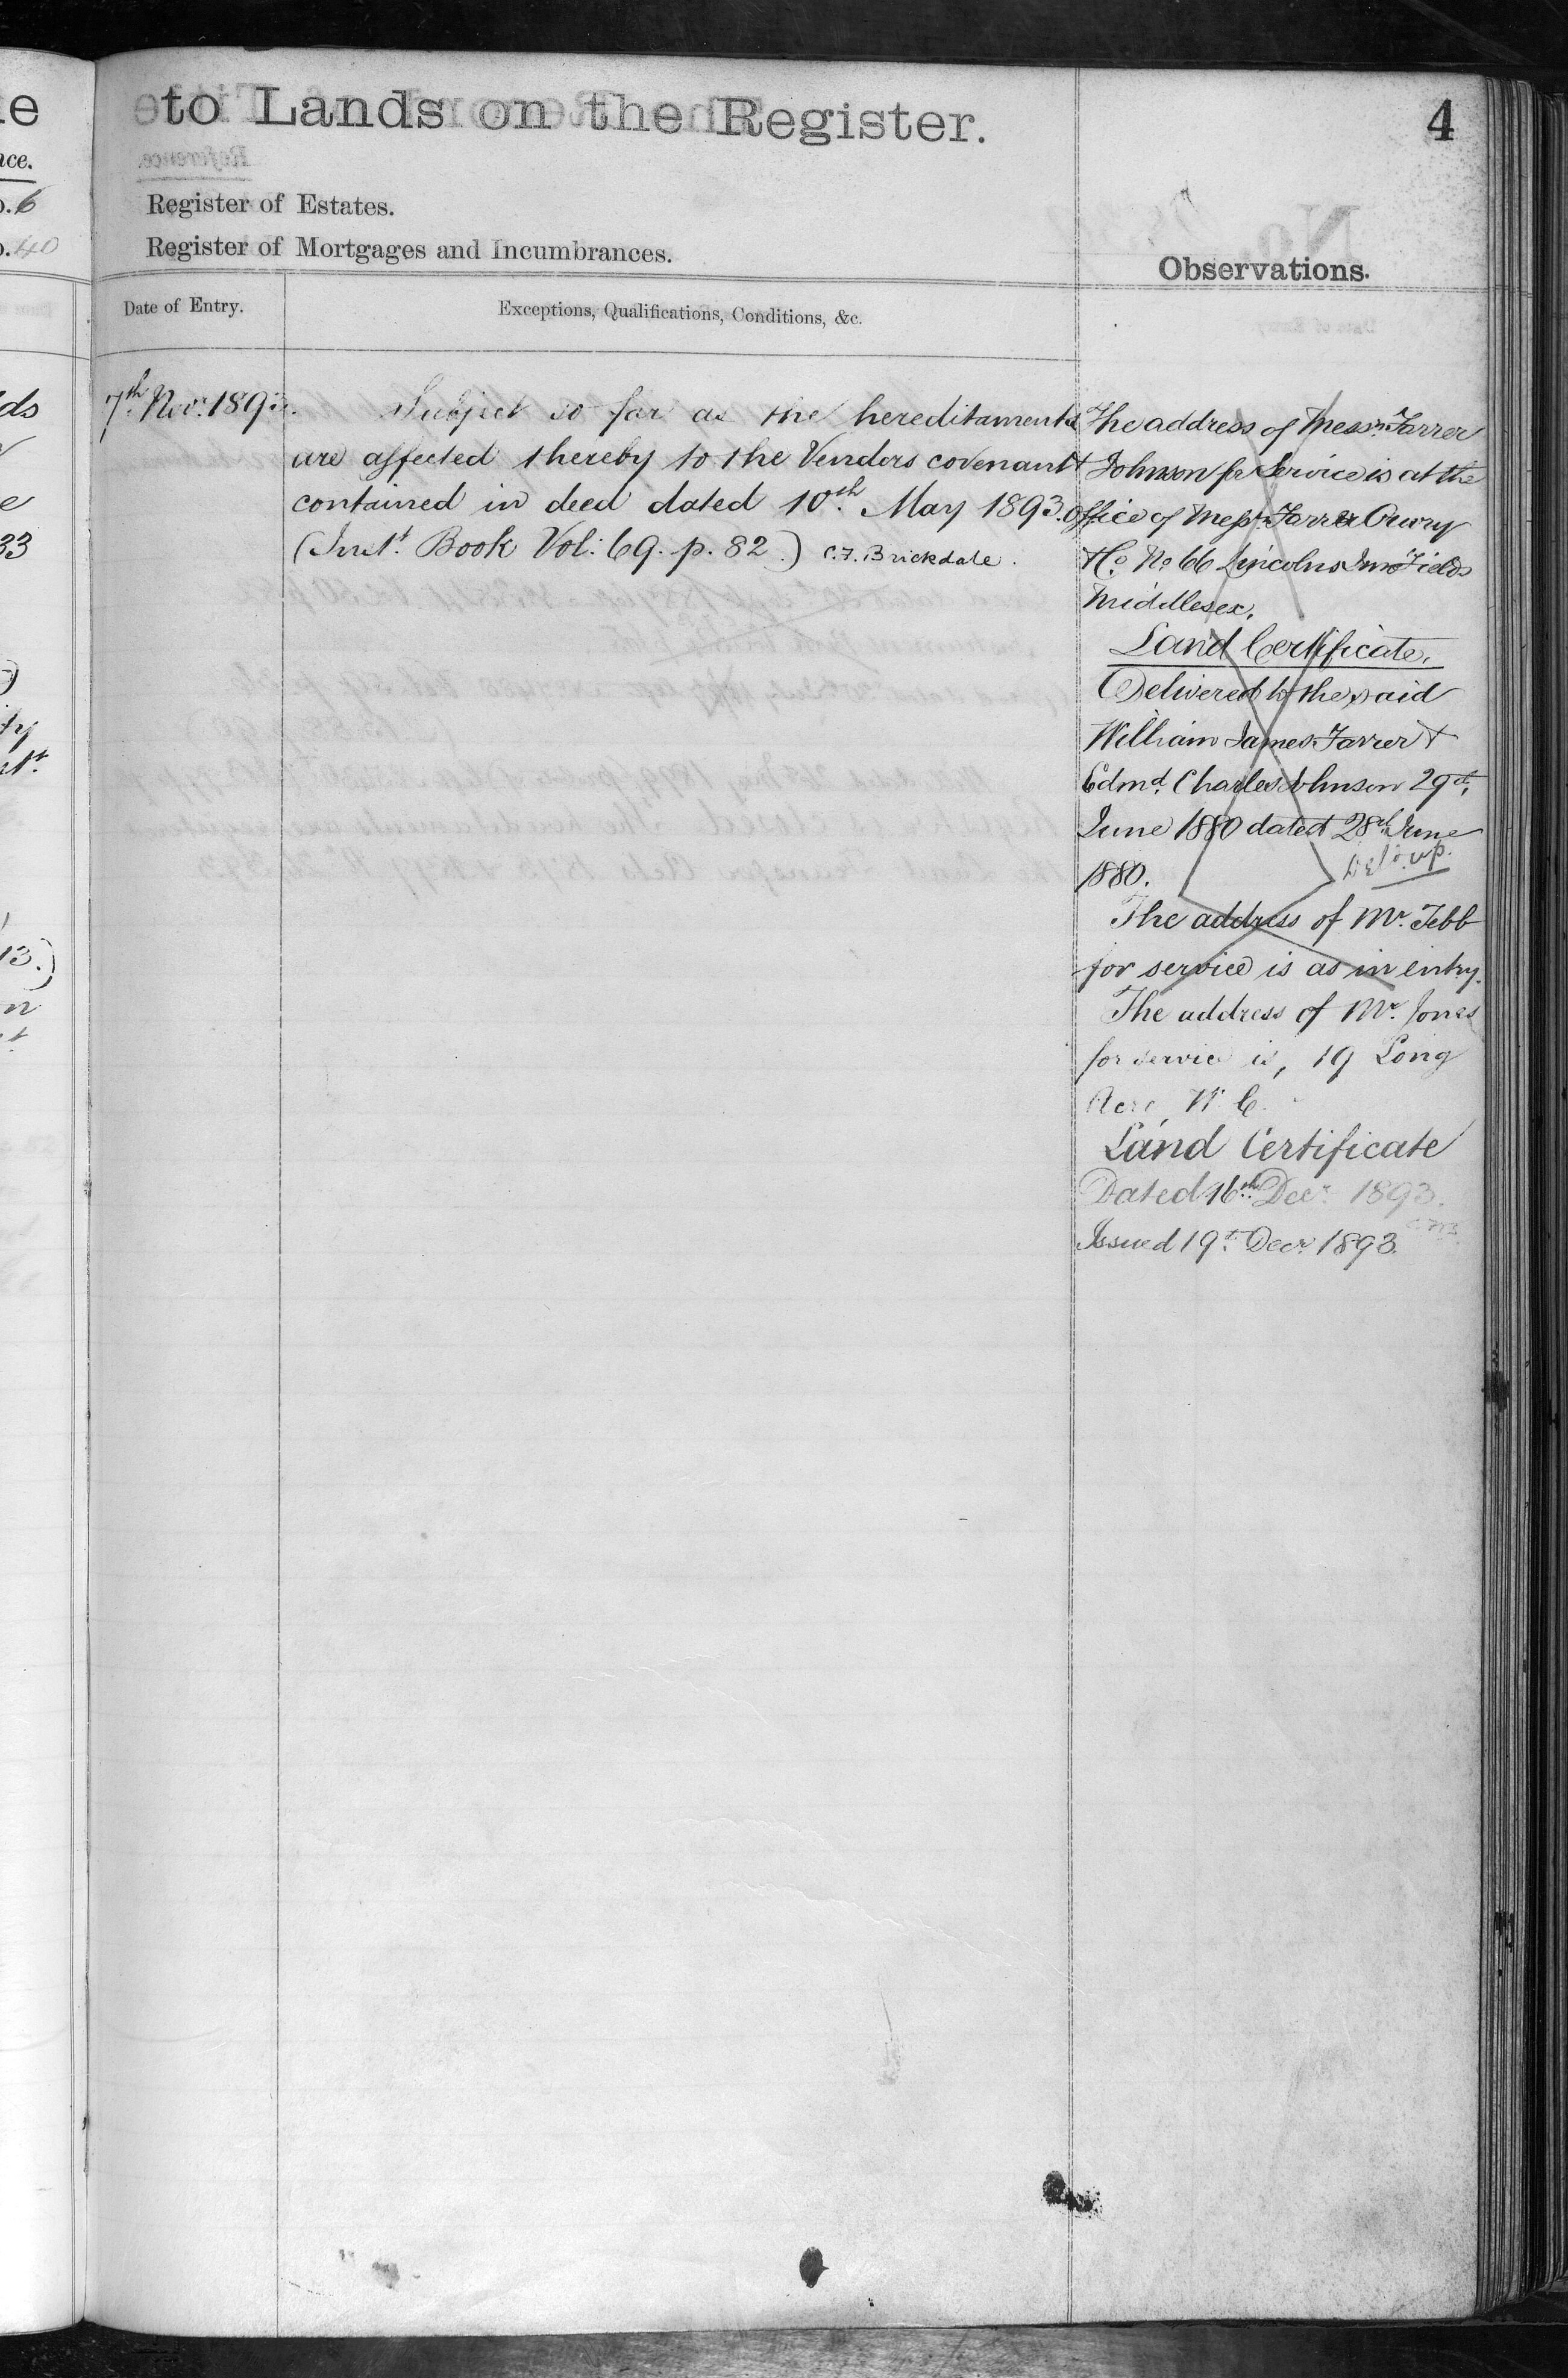 to Lands on the Register.
4
Register of Estates.
Register of Mortgages and Incumbrances.
Observations.
Date of Entry.
Exceptions, Qualifications, Conditions, &c.
7th Novr. 1893.
Subject so far as the hereditaments
are affected thereby to the Vendors covenant
contained in deed dated 10th May 1893.
(Inst. Book Vol: 69. p. 82.) C.F. Brickdale.
The address of Messrs. Farrer
& Johnson for Service is at the
Office of Messrs. Farrer Ouvry
& Co. No. 66 Lincolns Inn Fields
Middlesex.
Land Certificate.
Delivered to the said
William James Farrer &
Edmd. Charles Johnson 29th
June 1880 dated 28th June
1880.
Deld. up.
The address of Mr. Tebb
for service is as in entry.
The address of Mr. Jones
for service is, 19 Long
Acre, W.C.
Land Certificate
Dated 16th Decr. 1893.
Issued 19th Decr. 1893.
ds
33
ty
13.)